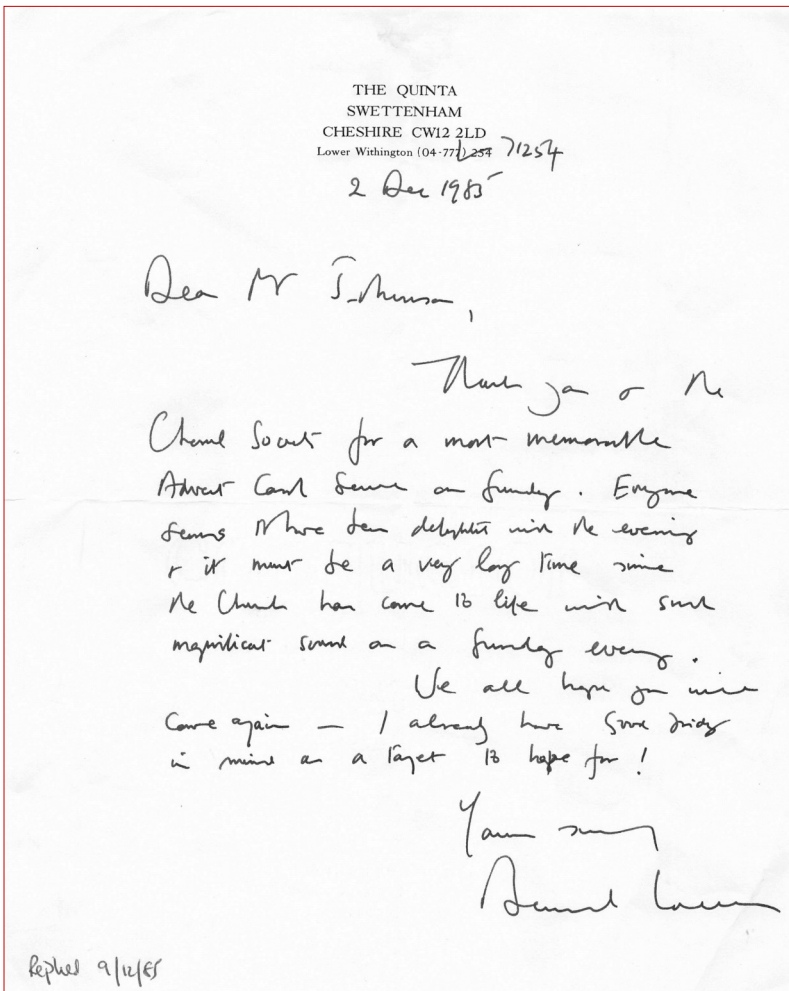 THE QUINTA
SWETTENHAM
CHESHIRE CW12 2LD
Lower Withington (04-777) 254 71254
2 Dec 1985
Dear Mr Johnson,
Thank you & the
Choral Society for a most memorable
Advent Carol Service on Sunday. Everyone
seems to have been delighted with the evening
& it must be a very long time since
the Church has come to life with such
magnificent sound on a Sunday evening.
We all hope you will
come again — I already have Good Friday
in mind as a target to hope for!
Yours sincerely
Bernard Lovell
Replied 9/12/85